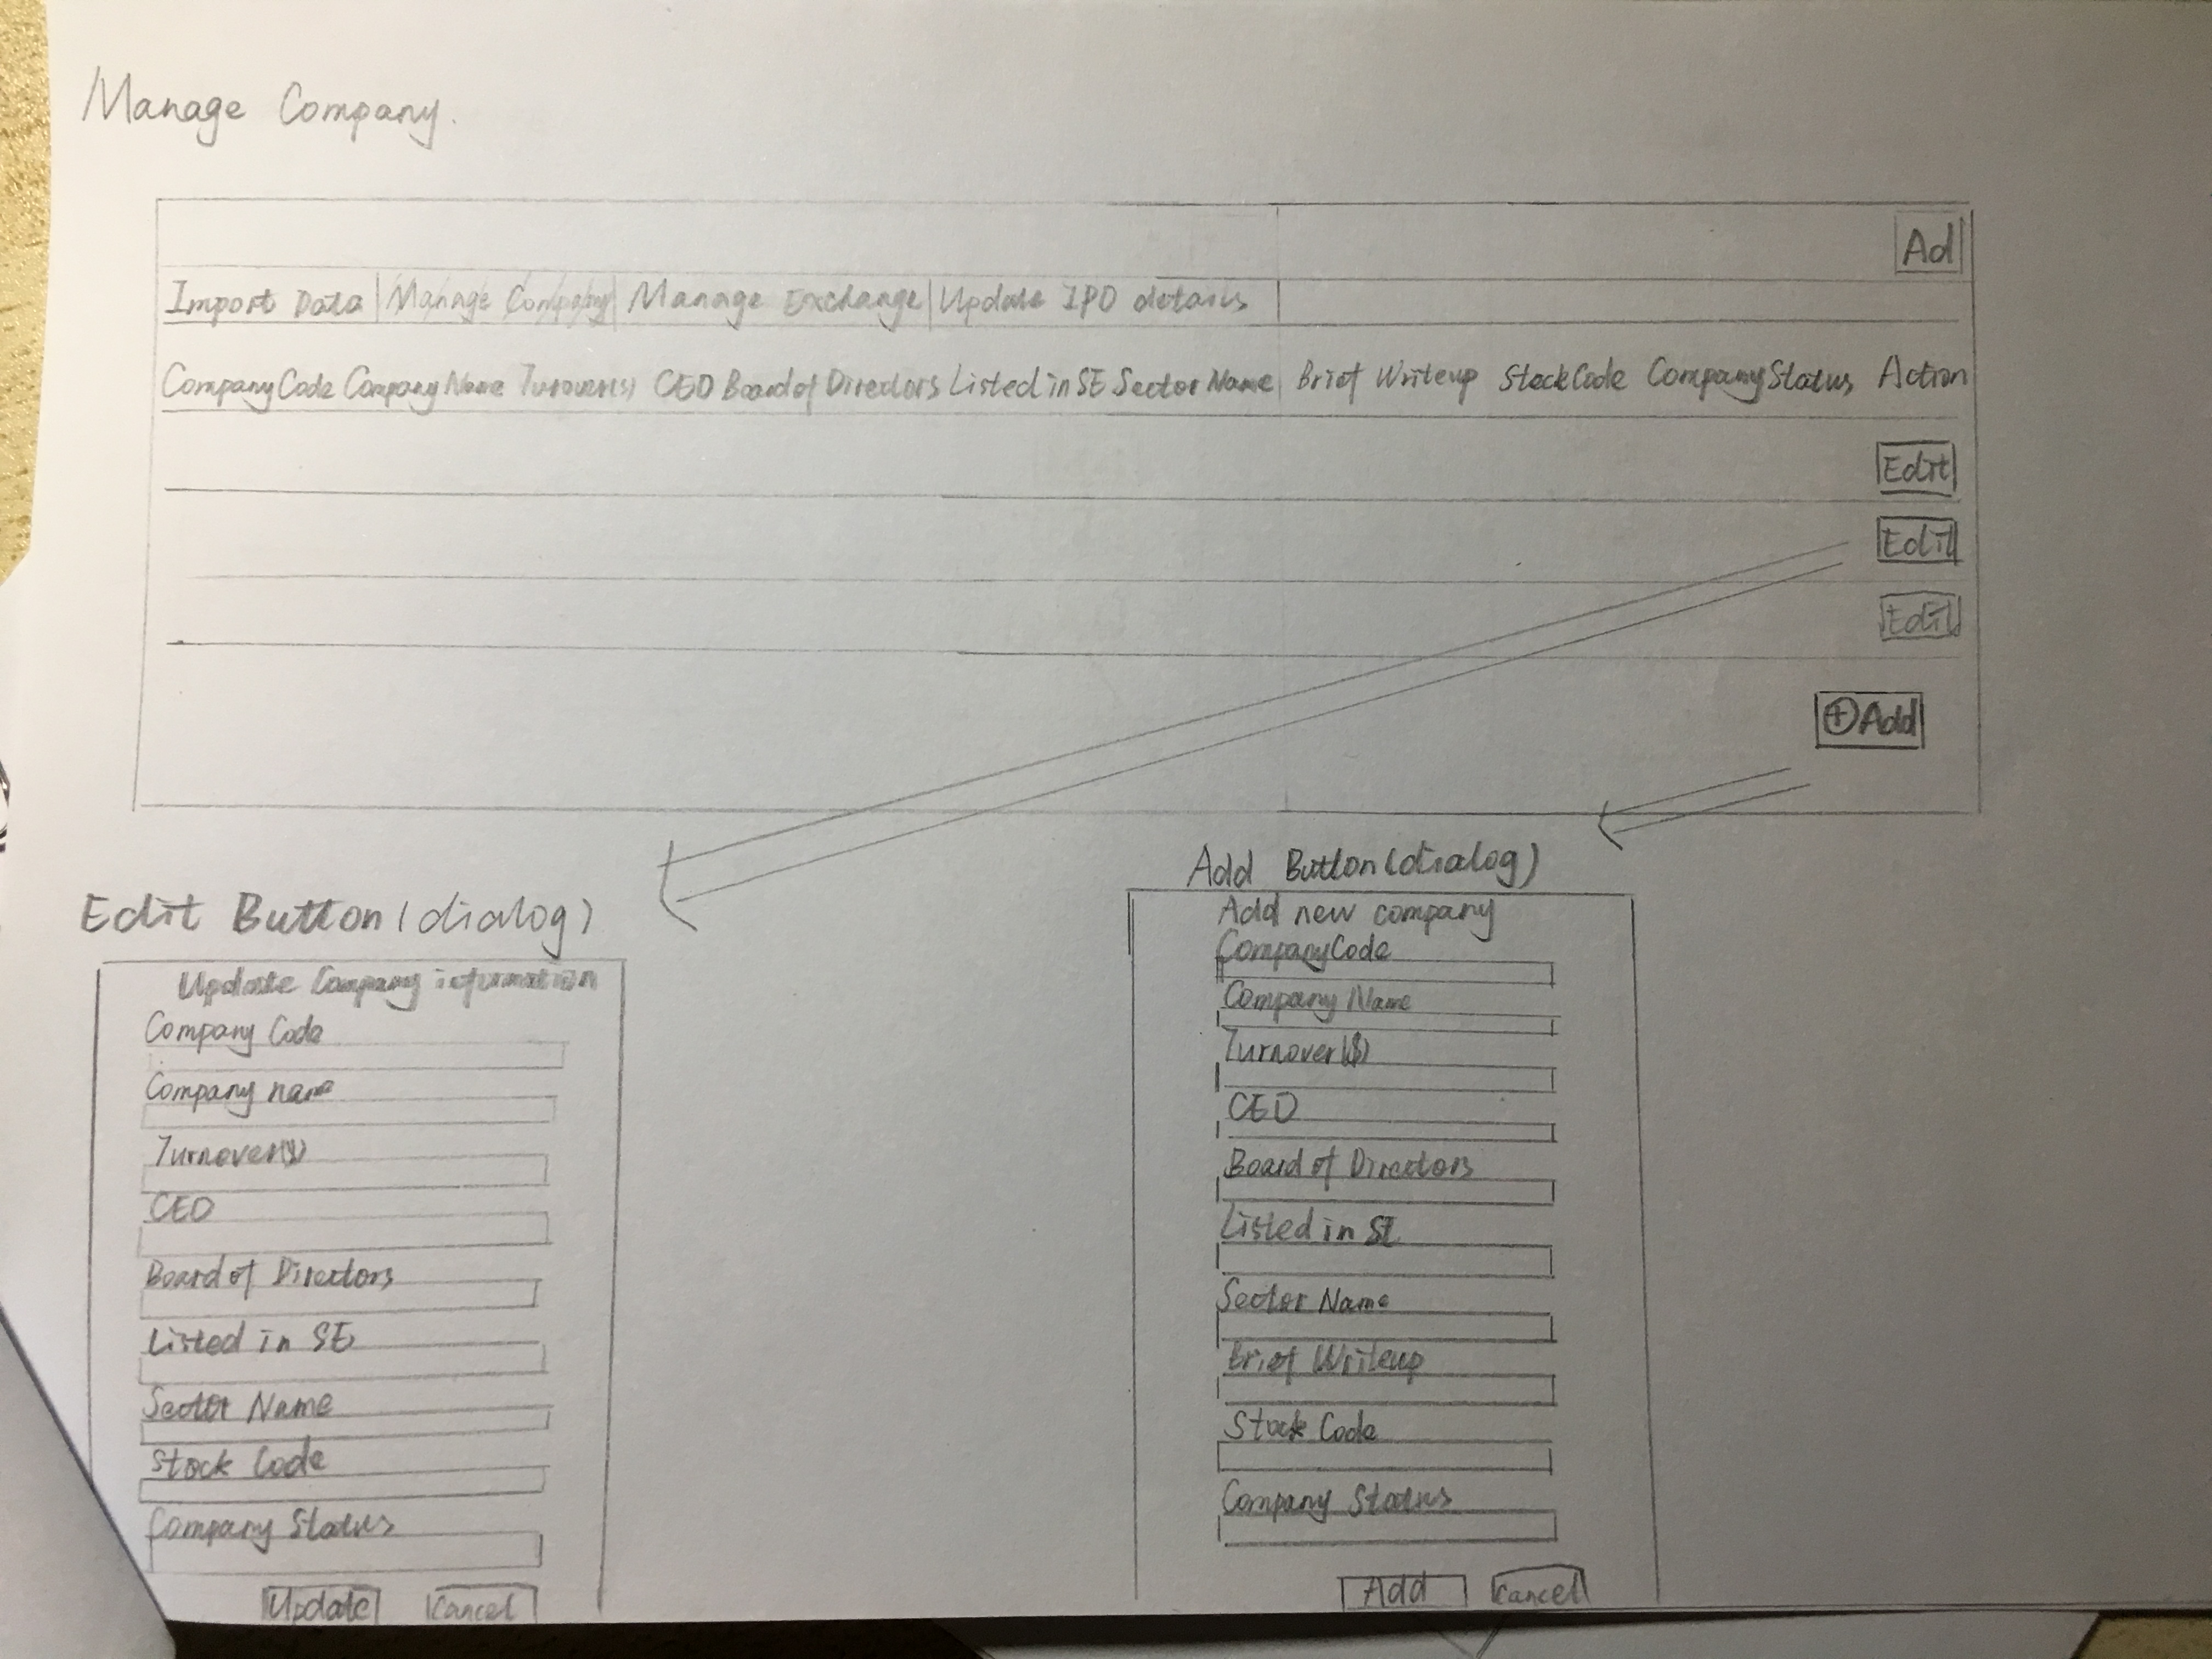 Manage Company.
Ad
Import Data Manage Company Manage Exchange Update IPO details
CompanyCode Company Name Turnover($) CEO Board of Directors Listed in SE Sector Name Brief Writeup StockCode Company Status Action
Edit
Edit
Edit
+Add
Edit Button(dialog)
Update Company information
Company Code
Company name
Turnover($)
CEO
Board of Directors
Listed in SE
Sector Name
Stock Code
Company Status
Update Cancel
Add Button(dialog)
Add new company
CompanyCode
Company Name
Turnover($)
CEO
Board of Directors
Listed in SE
Sector Name
Brief Writeup
Stock Code
Company Status
Add Cancel